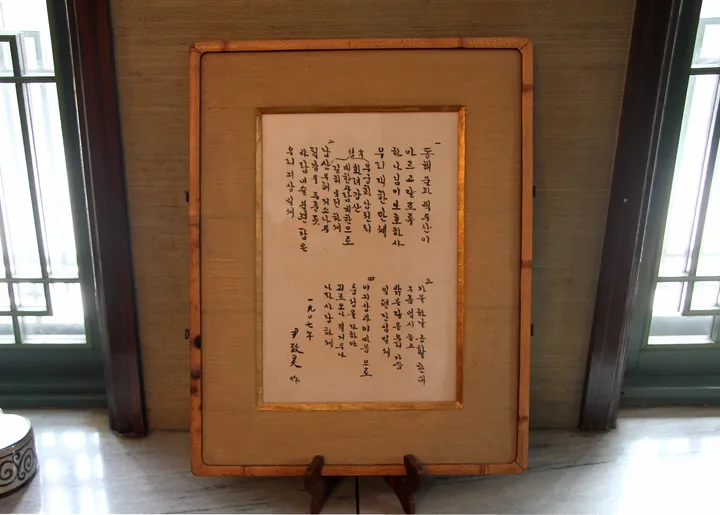 一
동해물과 백두산이
마르고 달토록
하나님이 보호하사
우리 대한만세
무궁화 삼천리
화려강산
대한사람 대한으로
길이 보전하세
二
남산우헤 저소나무
철갑을 두른듯
바람 불변함은
우리 긔상일세
三
가을하날 공활한대
구름업시 높고
밝은달은 우리가슴
일편단심일세
四
이긔상과 이마음으로
충성을 다하야
괴로오나 질거우나
나라사랑하세
一九〇七年
尹致昊 作